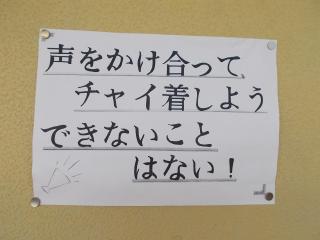 声をかけ合って、
チャイ着しよう
できないこと
はない!